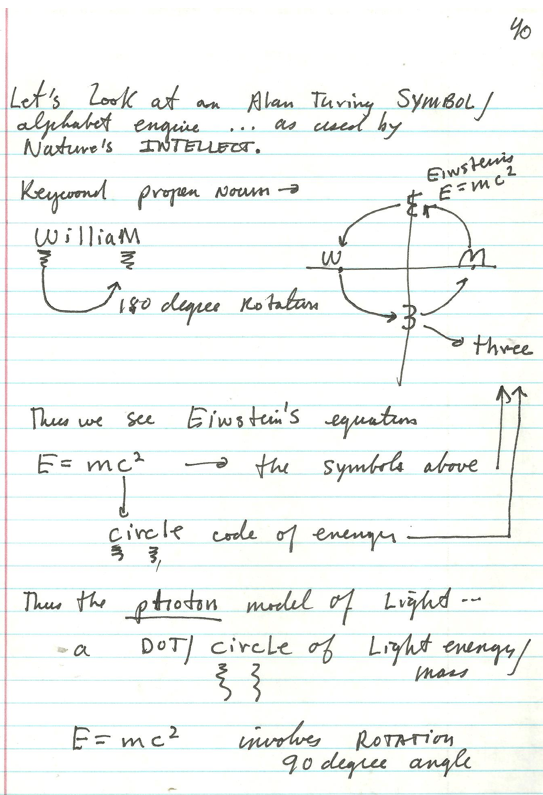 40
Let's look at an Alan Turing SYMBOL/
alphabet engine ... as used by
Nature's INTELLECT.
Einstein's
E=mc²
Keyword proper noun →
E
WilliaM
W M
180 degree rotation
3
three
Thus we see Einstein's equation
E = mc² → the symbols above
circle code of energy
Thus the photon model of Light --
a DOT/ circle of Light energy/
mass
E = mc² involves ROTATION
90 degree angle